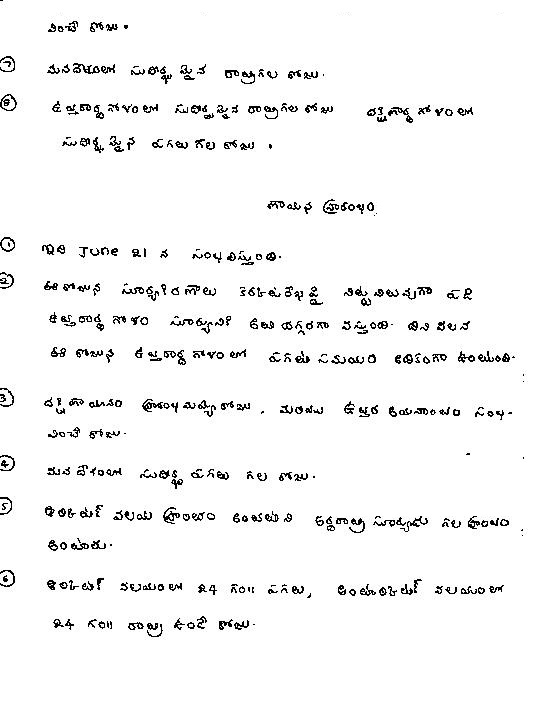 వించే రోజు.
⑦ మనదేశంలో సుదీర్ఘ మైన రాత్రిగల రోజు.
⑧ ఉత్తరార్ధగోళంలో సుదీర్ఘమైన రాత్రిగల రోజు దక్షిణార్ధ గోళంలో
సుదీర్ఘమైన పగలు గల రోజు .
ప్రారంభం
① ఇది June 21 న సంభవిస్తుంది.
② ఈ రోజున సూర్యకిరణాలు కర్కటరేఖపై నిట్టనిలువుగా పడి
ఉత్తరార్ధ గోళం సూర్యునికి దగ్గరగా వస్తుంది. దీని వలన
ఈ రోజున ఉత్తరార్ధ గోళంలో పగటి సమయం అధికంగా ఉంటుంది.
③ దక్షిణాయనం ప్రారంభమయ్యే రోజు, మరియు ఉత్తర ఆయనాంతం సంభ-
వించే రోజు.
④ మన దేశంలో సుదీర్ఘ పగలు గల రోజు.
⑤ ఆర్కిటిక్ వలయ ప్రాంతం అర్ధరాత్రి సూర్యుడు గల ప్రాంతం
అంటారు.
⑥ ఆర్కిటిక్ వలయంలో 24 గం॥ పగలు, అంటార్కిటిక్ వలయంలో
24 గం॥ రాత్రి ఉండే రోజు.